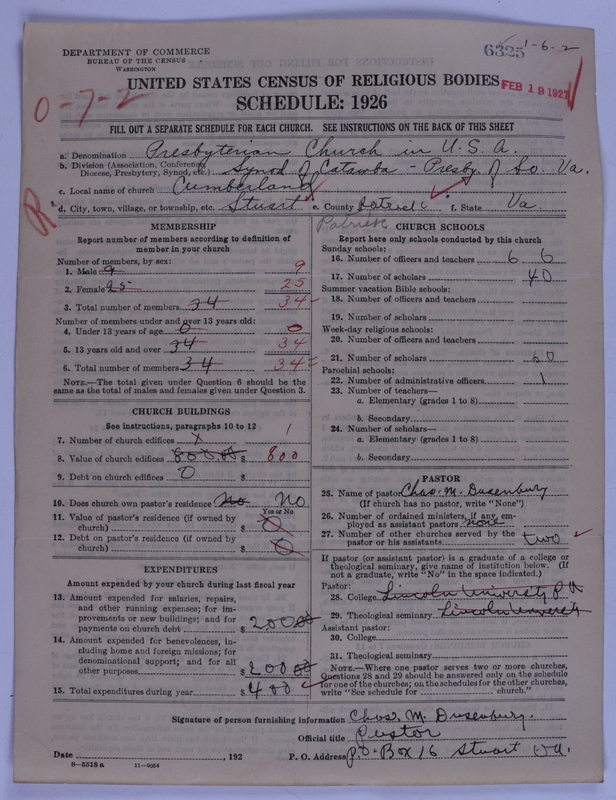 DEPARTMENT OF COMMERCE
BUREAU OF THE CENSUS
WASHINGTON
6325 1-6-2
UNITED STATES CENSUS OF RELIGIOUS BODIES
FEB 19 1927
SCHEDULE: 1926
0-7-2
FILL OUT A SEPARATE SCHEDULE FOR EACH CHURCH. SEE INSTRUCTIONS ON THE BACK OF THIS SHEET
a. Denomination Presbyterian Church in U.S.A.
b. Division (Association, Conference, Diocese, Presbytery, Synod, etc.) Synod of Catawba - Presby of So. Va.
c. Local name of church Cumberland
d. City, town, village, or township, etc. Stuart e. County Patrick f. State Va.
R.
Patrick
MEMBERSHIP
Report number of members according to definition of
member in your church
Number of members, by sex:
1. Male 9 9
2. Female 25 25
3. Total number of members 34 34
Number of members under and over 13 years old:
4. Under 13 years of age 0 0
5. 13 years old and over 34 34
6. Total number of members 34 34
NOTE.—The total given under Question 6 should be the
same as the total of males and females given under Question 3.
CHURCH BUILDINGS
See instructions, paragraphs 10 to 12
7. Number of church edifices 1
8. Value of church edifices 800.00 $ 800
9. Debt on church edifices 0 $
10. Does church own pastor's residence No No
Yes or No
11. Value of pastor's residence (if owned by
church) $ 0
12. Debt on pastor's residence (if owned by
church) $ 0
EXPENDITURES
Amount expended by your church during last fiscal year
13. Amount expended for salaries, repairs,
and other running expenses; for im-
provements or new buildings; and for
payments on church debt $ 200 00
14. Amount expended for benevolences, in-
cluding home and foreign missions; for
denominational support; and for all
other purposes $ 200 00
15. Total expenditures during year $ 400
CHURCH SCHOOLS
Report here only schools conducted by this church
Sunday schools:
16. Number of officers and teachers 6 6
17. Number of scholars 40
Summer vacation Bible schools:
18. Number of officers and teachers
19. Number of scholars
Week-day religious schools:
20. Number of officers and teachers
21. Number of scholars 60
Parochial schools:
22. Number of administrative officers 1
23. Number of teachers—
a. Elementary (grades 1 to 8)
b. Secondary
24. Number of scholars—
a. Elementary (grades 1 to 8)
b. Secondary
PASTOR
25. Name of pastor Chas. M. Dusenbury
(If church has no pastor, write "None")
26. Number of ordained ministers, if any, em-
ployed as assistant pastors none
27. Number of other churches served by the
pastor or his assistants two
If pastor (or assistant pastor) is a graduate of a college or
theological seminary, give name of institution below. (If
not a graduate, write "No" in the space indicated.)
Pastor:
28. College Lincoln University Pa
29. Theological seminary Lincoln University
Assistant pastor:
30. College
31. Theological seminary
NOTE.—Where one pastor serves two or more churches,
Questions 28 and 29 should be answered only on the schedule
for one of the churches; on the schedules for the other churches,
write "See schedule for church."
Signature of person furnishing information Chas. M. Dusenbury.
Official title Pastor
Date , 192 P. O. Address P.O. Box 16 Stuart Va.
8-5518a 11-9054